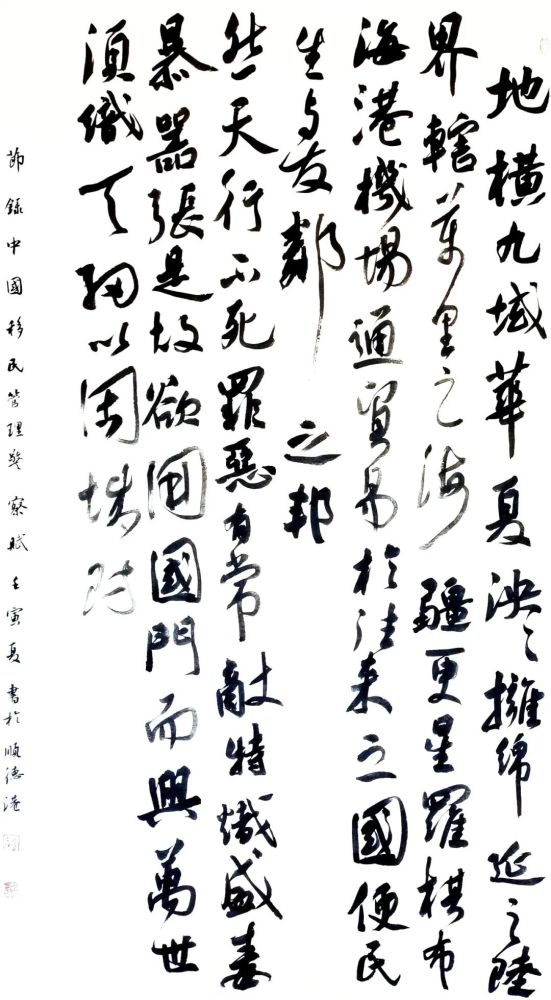 地橫九域華夏泱泱擁綿延之陸
界轄萬里之海疆更星羅棋布
海港機場通貿易於往來之國便民
生与友鄰之邦
然天行不死罪惡有常敵特熾盛毒
暴嚣張是故欲固國門而興萬世
須織天網以固
節錄中國移民管理警察賦壬寅夏書於順德港